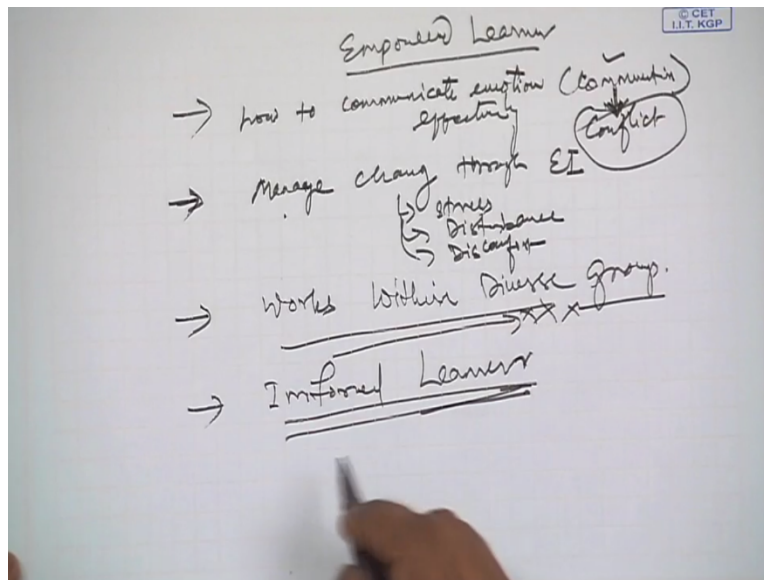 © CET
I.I.T. KGP
Empowered Learner
→ how to communicate emotion (Communication)
effectively
Conflict
→ Manage Change through EI
→ Stress
→ Disturbance
→ Discomfort
→ Works Within Diverse Group.
xxx
→ Informed Learners